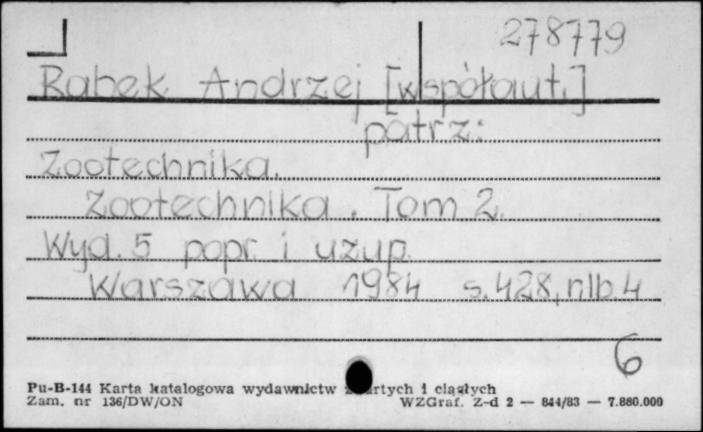 278779
Rabek Andrzej [współaut.]
patrz:
Zootechnika.
Zootechnika. Tom 2.
Wyd. 5 popr. i uzup.
Warszawa 1984 s. 428, nlb. 4
6
Pu-B-144 Karta katalogowa wydawnictw zwartych i ciągłych
Zam. nr 136/DW/ON WZGraf. Z-d 2 — 844/83 — 7.880.000